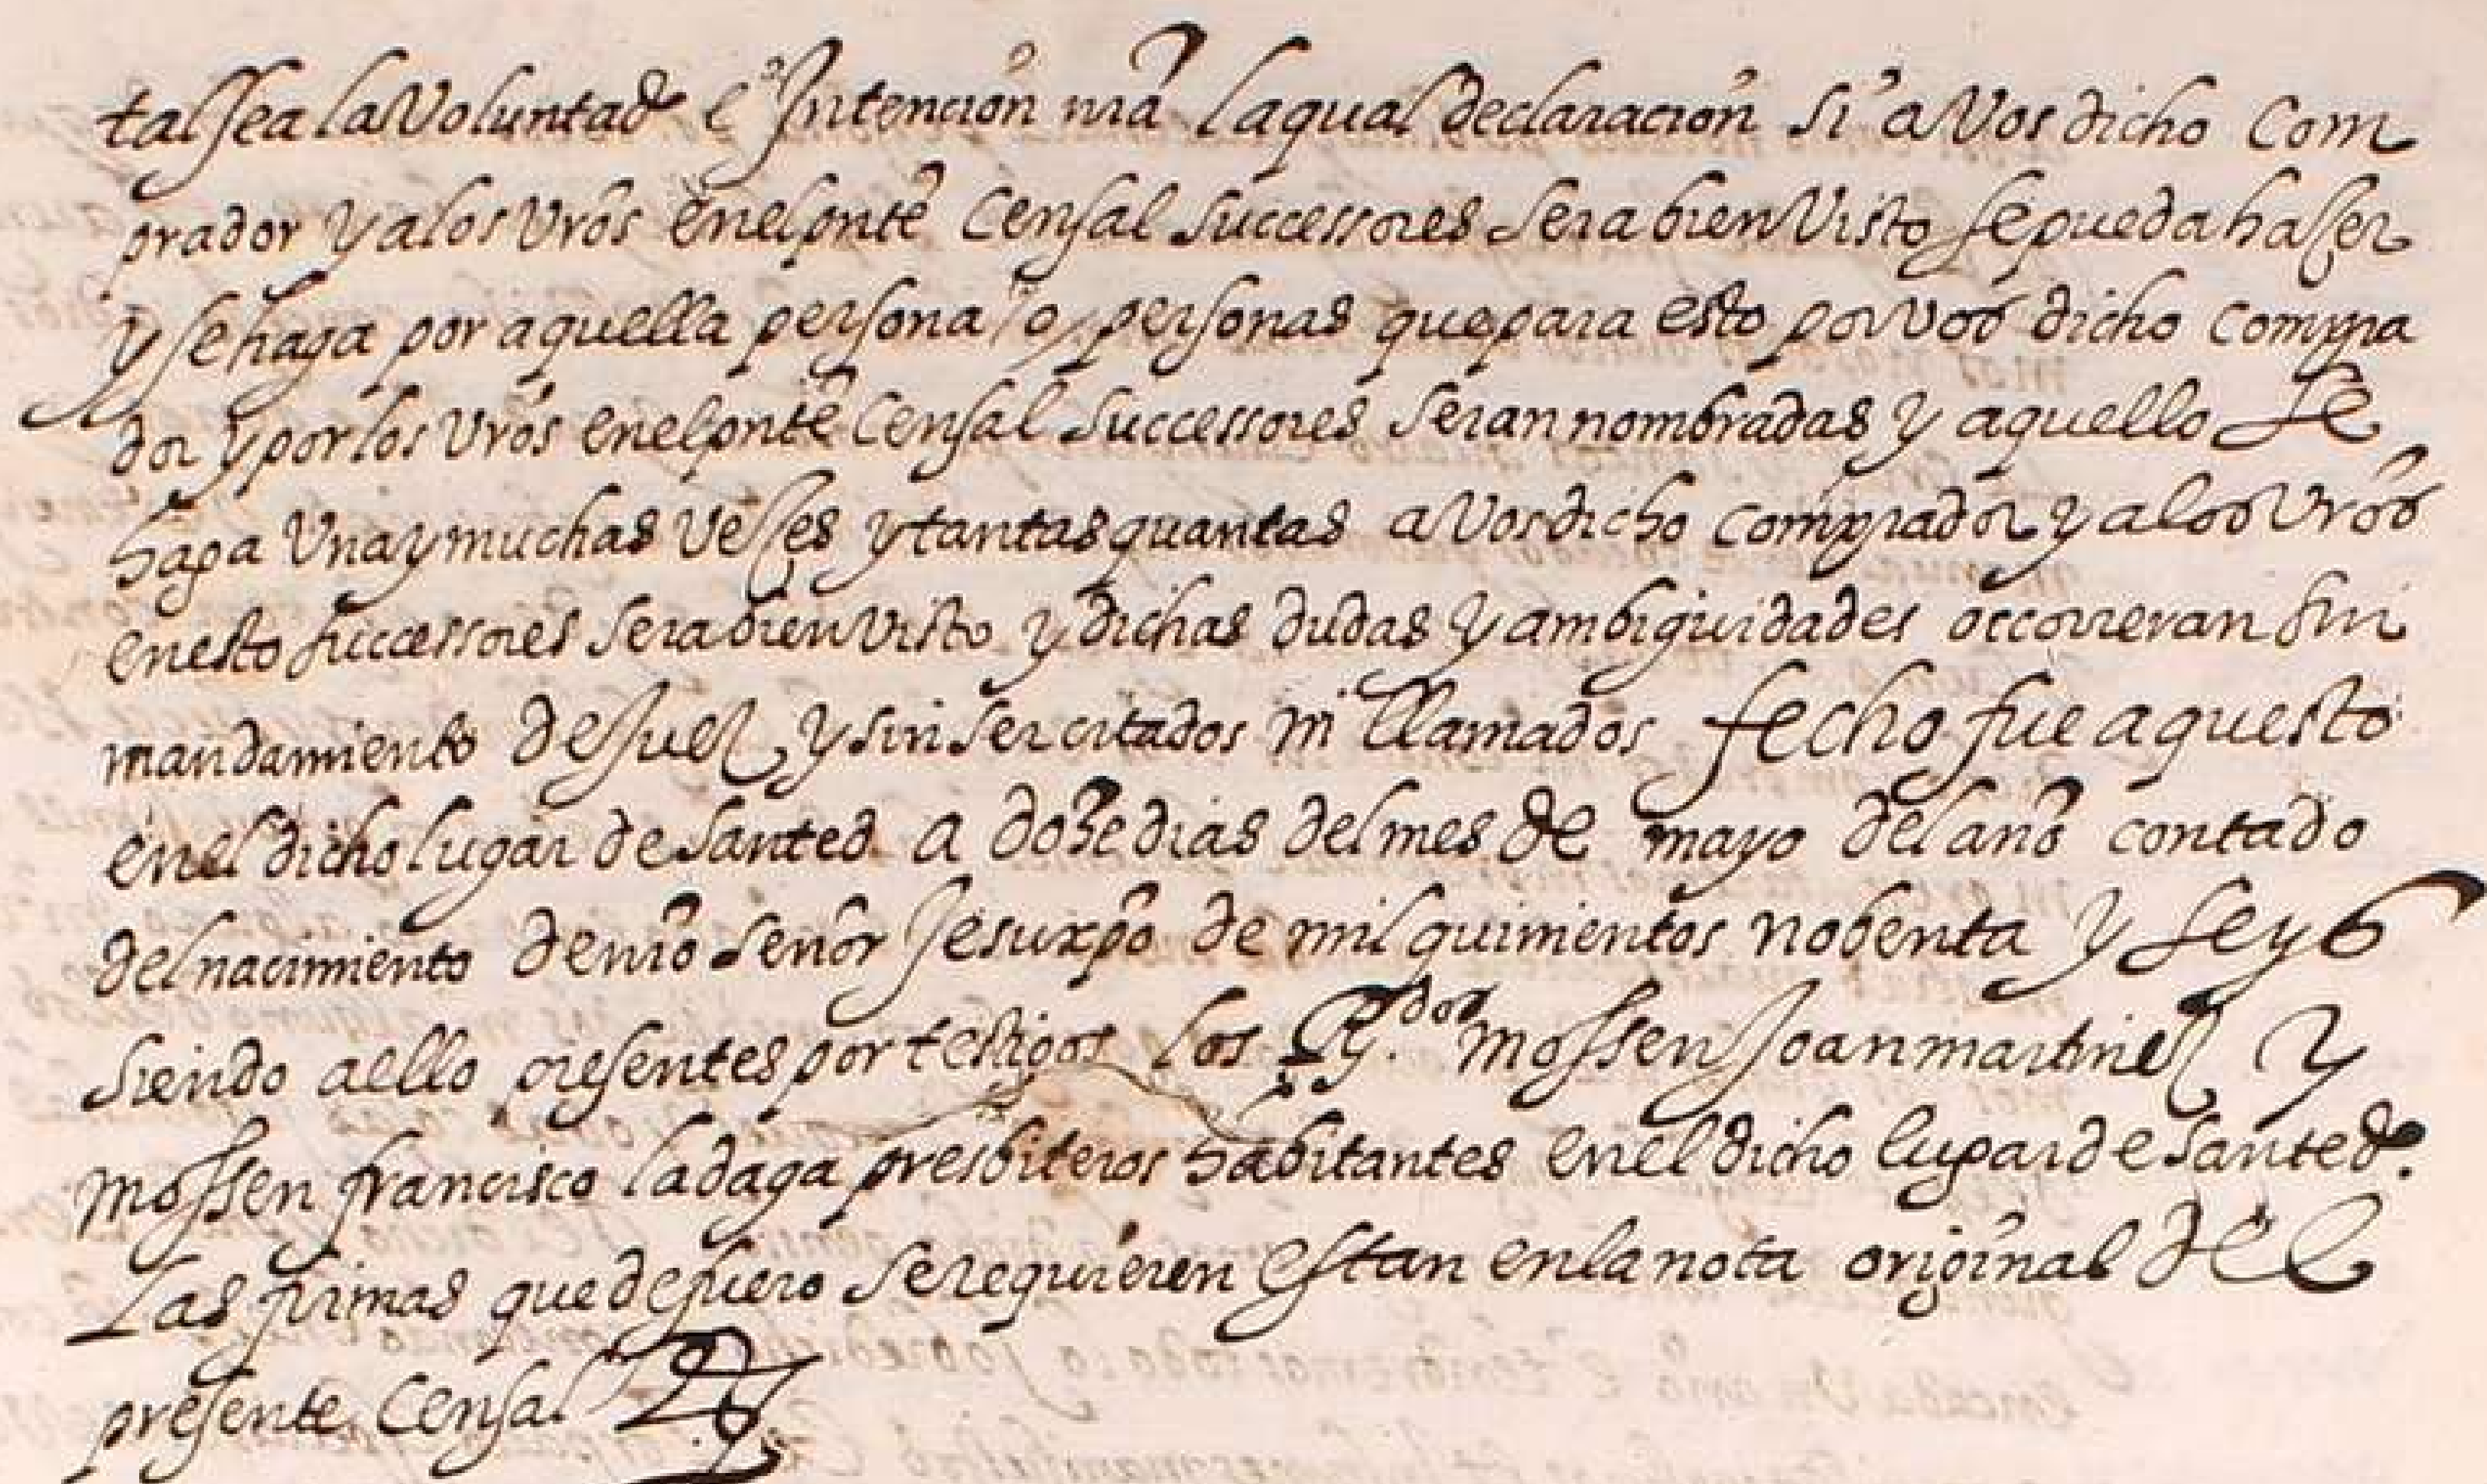 tal sea la Voluntad e Intencion nrã la qual declaracion si a Vos dicho Com
prador y a los Vrõs en el pnte Censal successores sera bien Visto se pueda haser
y se haga por aquella persona o personas que para esto por vos dicho compra
dor y por los Vrõs en el pnte Censal successores seran nombradas y aquello se
haga Una y muchas Veses y tantas quantas a Vos dicho comprador y a los Vrõs
en esto successores sera bien Visto y dichas dudas y ambiguidades occorreran sin
mandamiento de Juez y sin ser citados ni llamados fecho fue aquesto
en el dicho lugar de santed a doze dias del mes de mayo del año contado
del nacimiento de nrõ señor Jesuxpõ de mil quinientos nobenta y seys
siendo a ello presentes por testigos los Rdos mossen Joan martinez y
mossen francisco ladaga presbiteros habitantes en el dicho lugar de santed.
Las firmas que de fuero se requieren estan en la nota original del
presente Censal